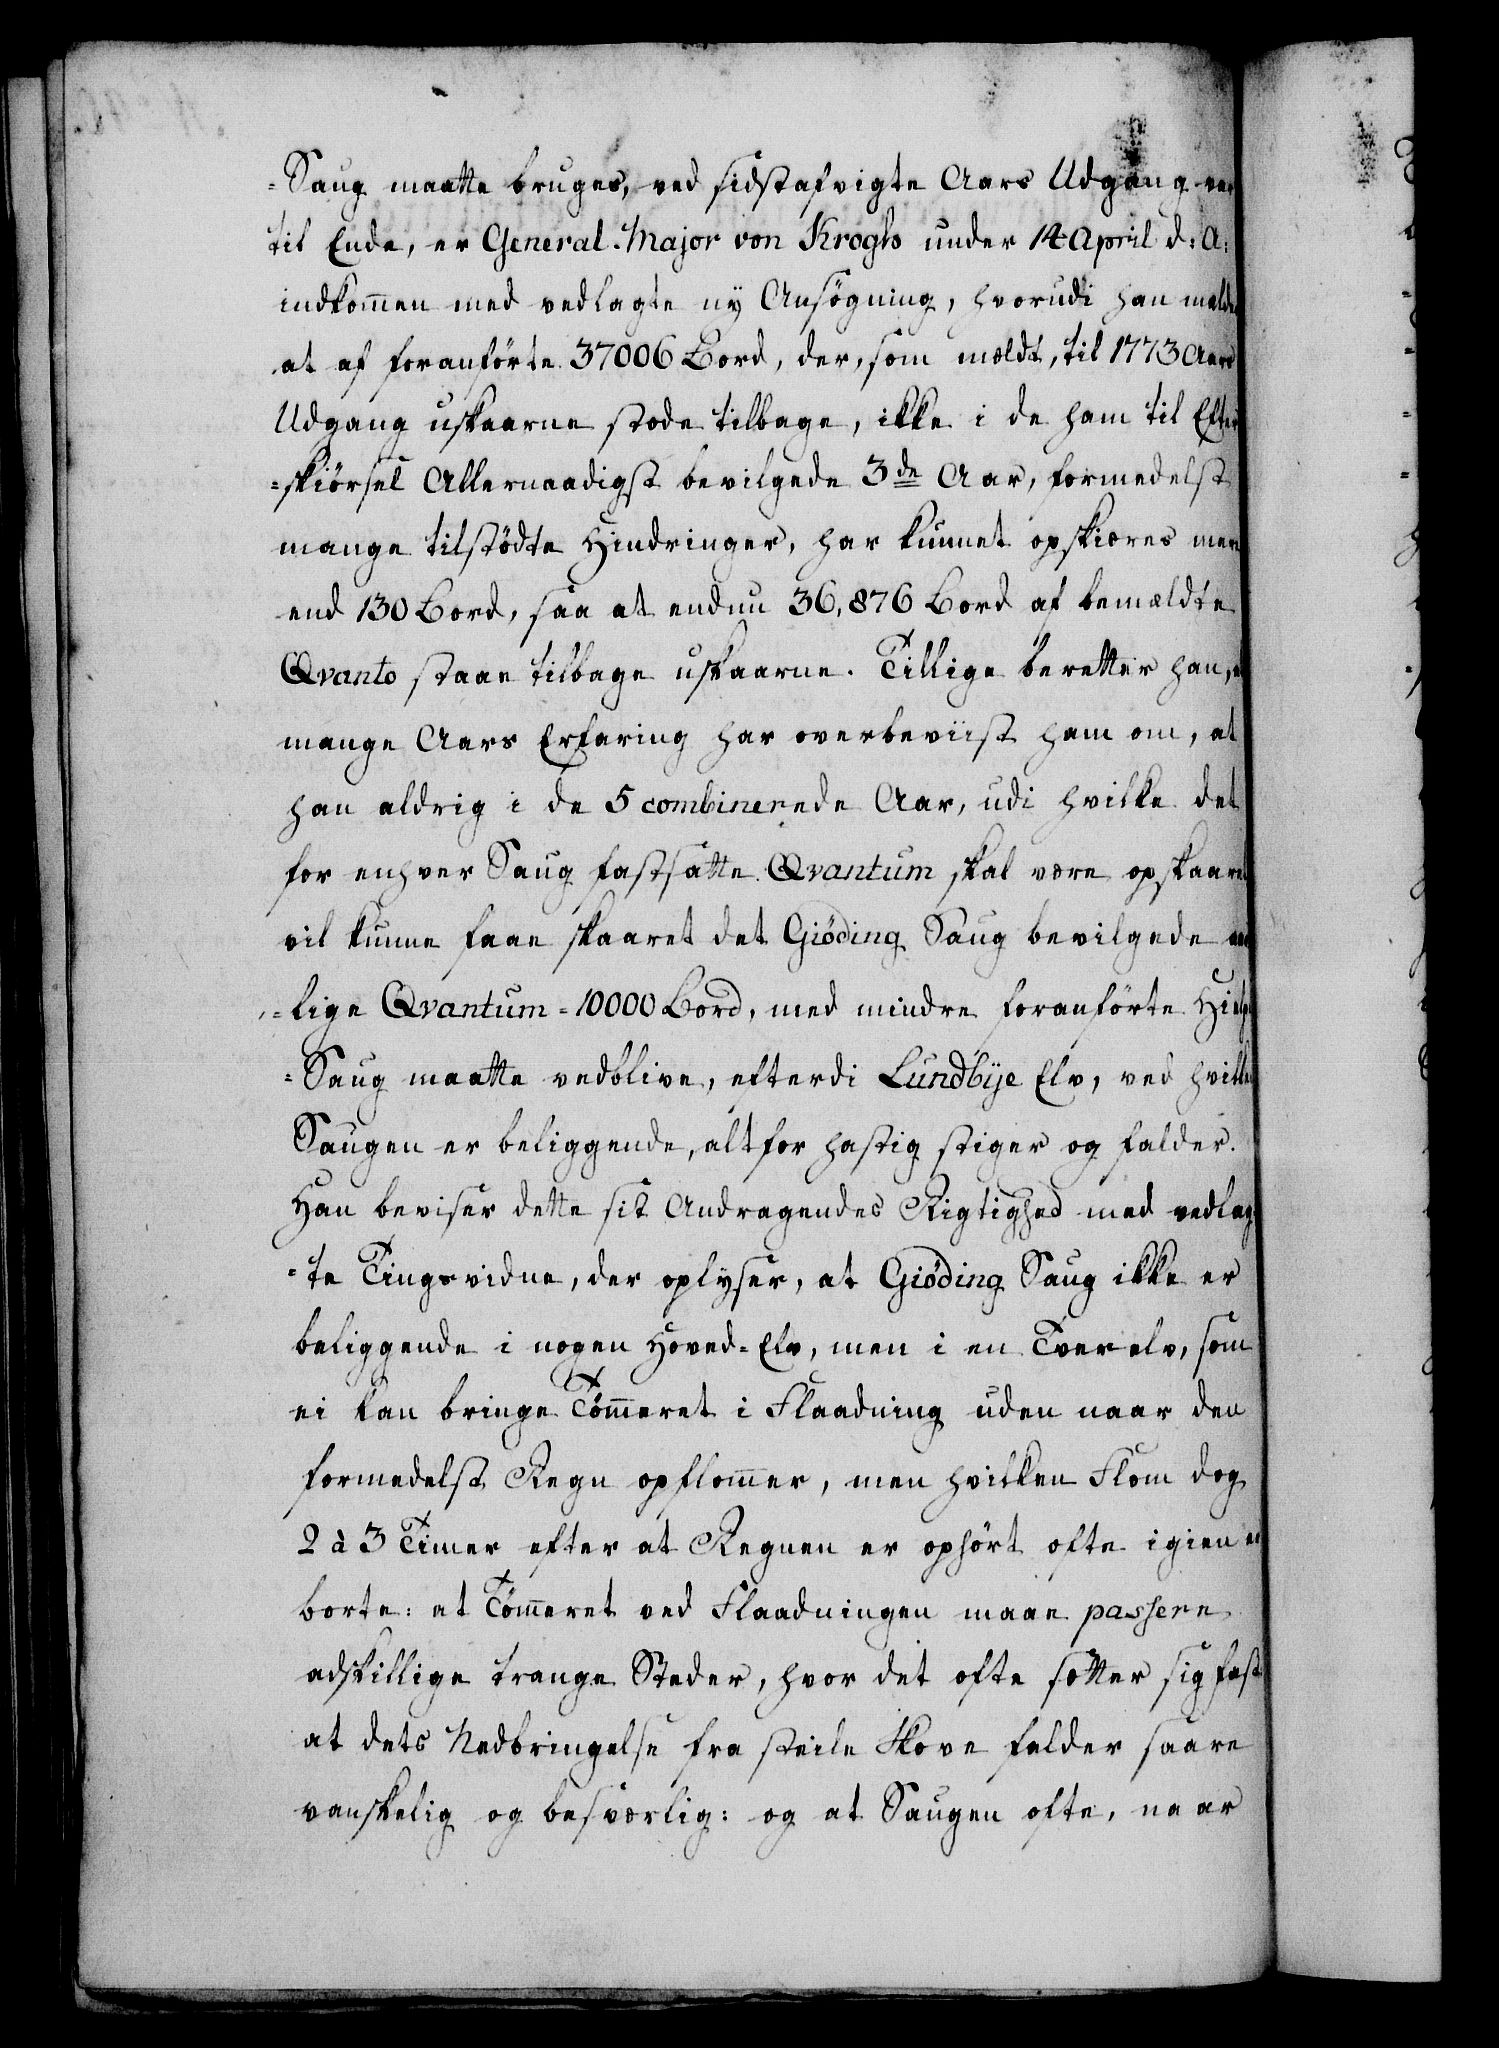 =Saug maatte bruges, ved sidstafvigte Aars Udgang var
til Ende, er General-Major von Krogh under 14 April d: A:
indkom̄en med vedlagte ny Ansøgning, hvorudi han melder
at af foranførte 37006 Bord, der, som meldt, til 1773 Aars
Udgang uskaarne stode tilbage, ikke i de ham til Efter
=skiørsel Allernaadigst bevilgede 3de Aar, formedelst
mange tilstødte Hindringer, har kunnet opskiæres mere
end 130 Bord, saa at endnu 36,876 Bord af bemældte
Qvanto staae tilbage uskaarne. Tillige beretter han,
mange Aars Erfaring har overbeviist ham om, at
han aldrig i de 5 combinerede Aar, udi hvilke det
for enhver Saug fastsatte Qvantum skal være opskaaret
vil kunne faae skaaret det Giöding Saug bevilgede aar
=lige Qvantum = 10000 Bord, med mindre foranførte Hielpe
=Saug maatte vedblive, efterdi Lundbÿe Elv, ved hvilken
Saugen er beliggende, altfor hastig stiger og falder.
Han beviser dette sit Andragendes Rigtighed med vedlag
=te Tingsvidne, der oplyser, at Giöding Saug ikke er
beliggende i nogen Hoved=Elv, men i en Tverelv, som
ei kan bringe Tøm̄eret i Flaadning uden naar den
formedelst Regn opflom̄er, men hvilken Flom dog
2 à 3 Timer efter at Regnen er ophørt ofte igien er
borte: at Tøm̄eret ved Flaadningen maae passere
adskillige trange Steder, hvor det ofte sætter sig fast
at dets Nedbringelse fra steile Skove falder saare
vanskelig og besværlig: og at Saugen ofte, naar